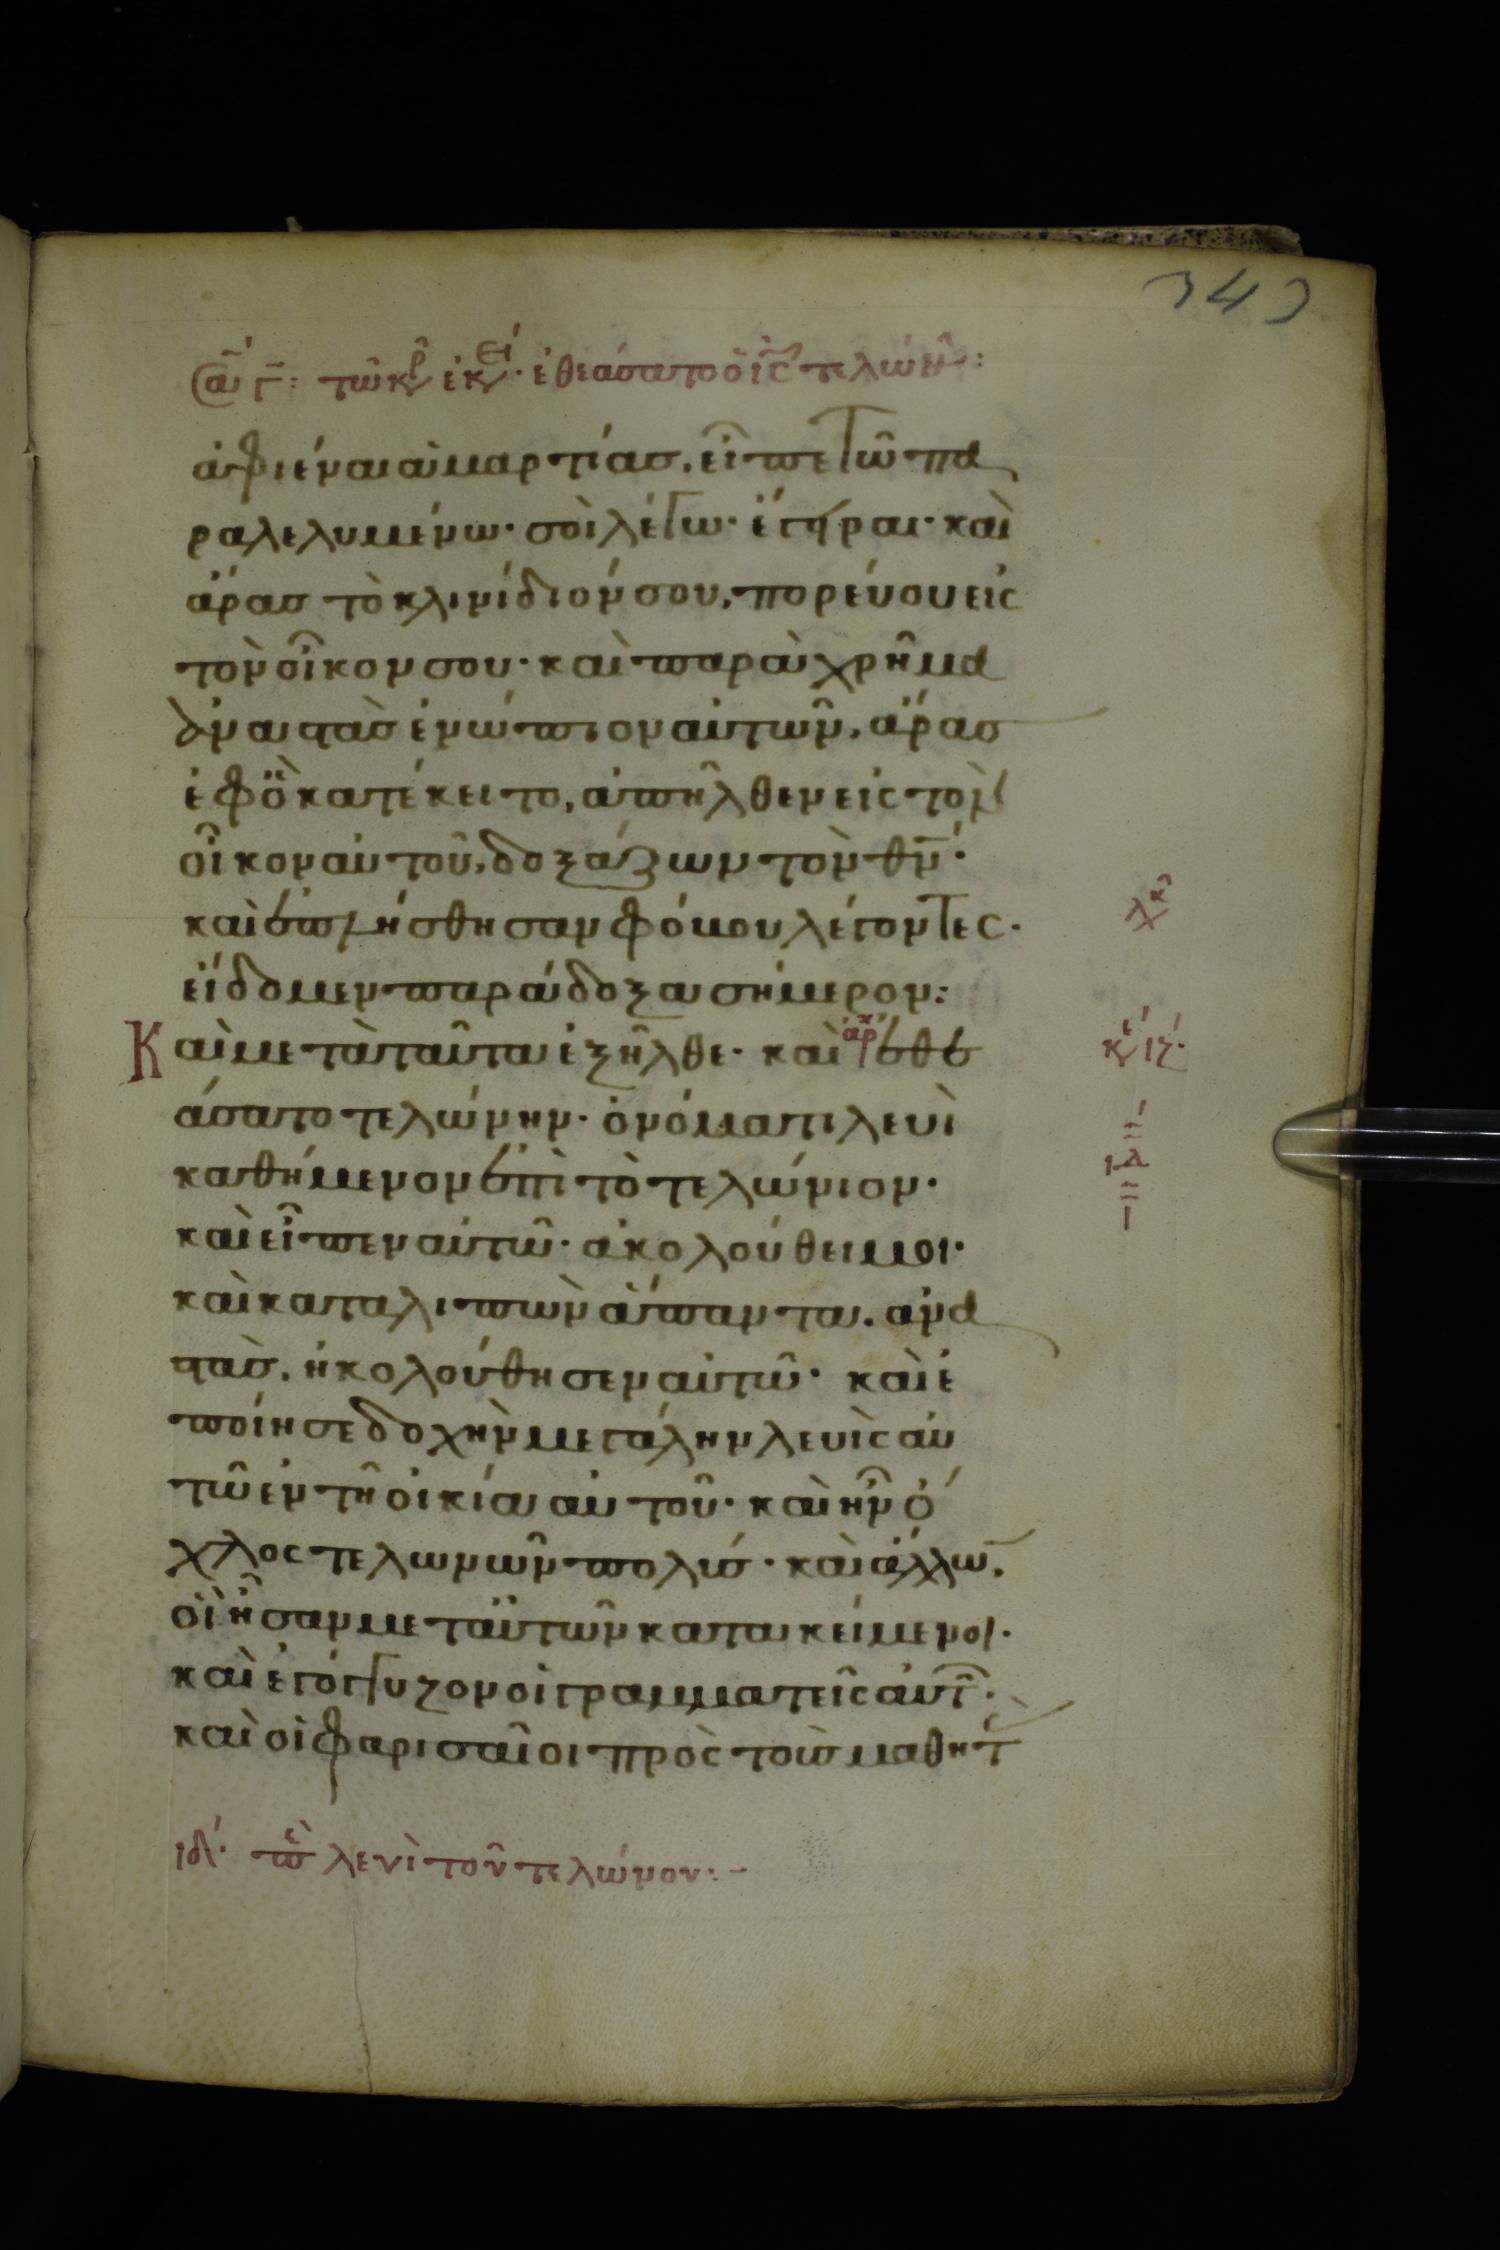 343
Σαʹ γ̄: τῶ κρ̂ ἐκει· ἐθεάσατο ὁ ἰς̄ τελώνην:
ἀφιέναι ἁμαρτίασ. εἶπε τῶ πα
ραλελυμένω· σοὶ λέγω· ἔγηραι· καὶ
ἄρασ τὸ κλινίδιόν σου, πορεύου εἰς
τὸν οἶκον σου· καὶ παραὰχρῆμα
ἀναστὰσ ἐνώπιον αὐτῶν, ἄρασ
ἐφ ὃ κατέκειτο, ἀπῆλθεν εἰς τὸν
οἶκον αὐτοῦ, δοξάζων τὸν θν̄·
καὶ ἐπλήσθησαν φόβου λέγοντες·
εἴδομεν παράδοξα σήμερον:
Καὶ μετὰ ταῦτα ἐξῆλθε· καὶ ἀρχ ἐθε
άσατο τελώνην· ὀνόματι λευὶ
καθήμενον ἐπὶ τὸ τελώνιον·
καὶ εἶπεν αὐτῶ· ἀκολούθει μοι·
καὶ καταλιπὼν ἅπαντα. ἀνα
στὰσ, ἠκολούθησεν αὐτῶ· καὶ ἐ
ποίησε δοχὴν μεγάλην λευὶς αὐ
τῶ ἐν τῆ οἰκία αὐτοῦ· καὶ ἦν ὄ
χλος τελωνῶν πολύσ· καὶ ἄλλω̄,
οἳ ἦσαν μετ αὐτῶν κατακείμενοι·
καὶ ἐγόγγυζον οἱ γραμματεῖς αὐτ͂·
καὶ οἱ φαρισαῖοι πρὸς τοὺσ μαθητ
λκ
κε ιζ·
ιδ
ιδ· πε λευὶ τοῦ τελώνου:-